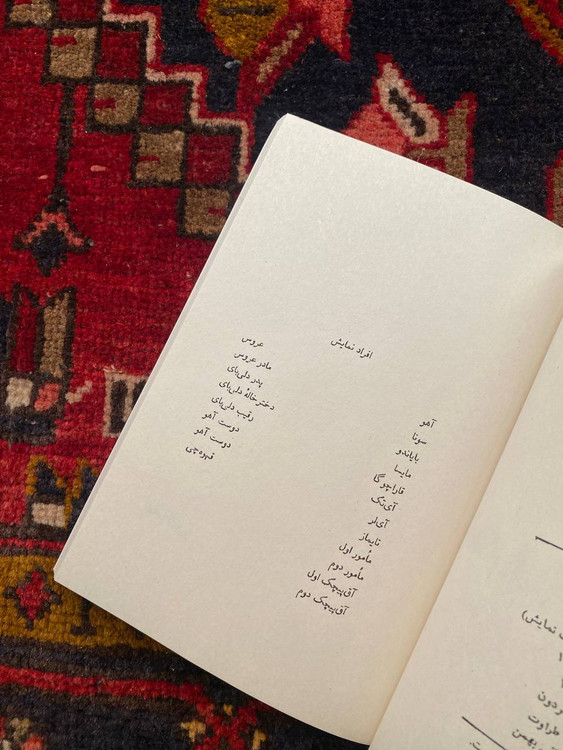 افراد نمایش
آهو
سونا
بایاندو
مایسا
قاراچوگا
آی‌تک
آی‌لر
تایماز
مأمور اول
مأمور دوم
آق‌پیچک اول
آق‌پیچک دوم
عروس
مادر عروس
پدر دلی‌بای
دخترخالهٔ دلی‌بای
رقیب دلی‌بای
دوست آهو
دوست آهو
قهوه‌چی
نمایش)
طراوت
بهمن